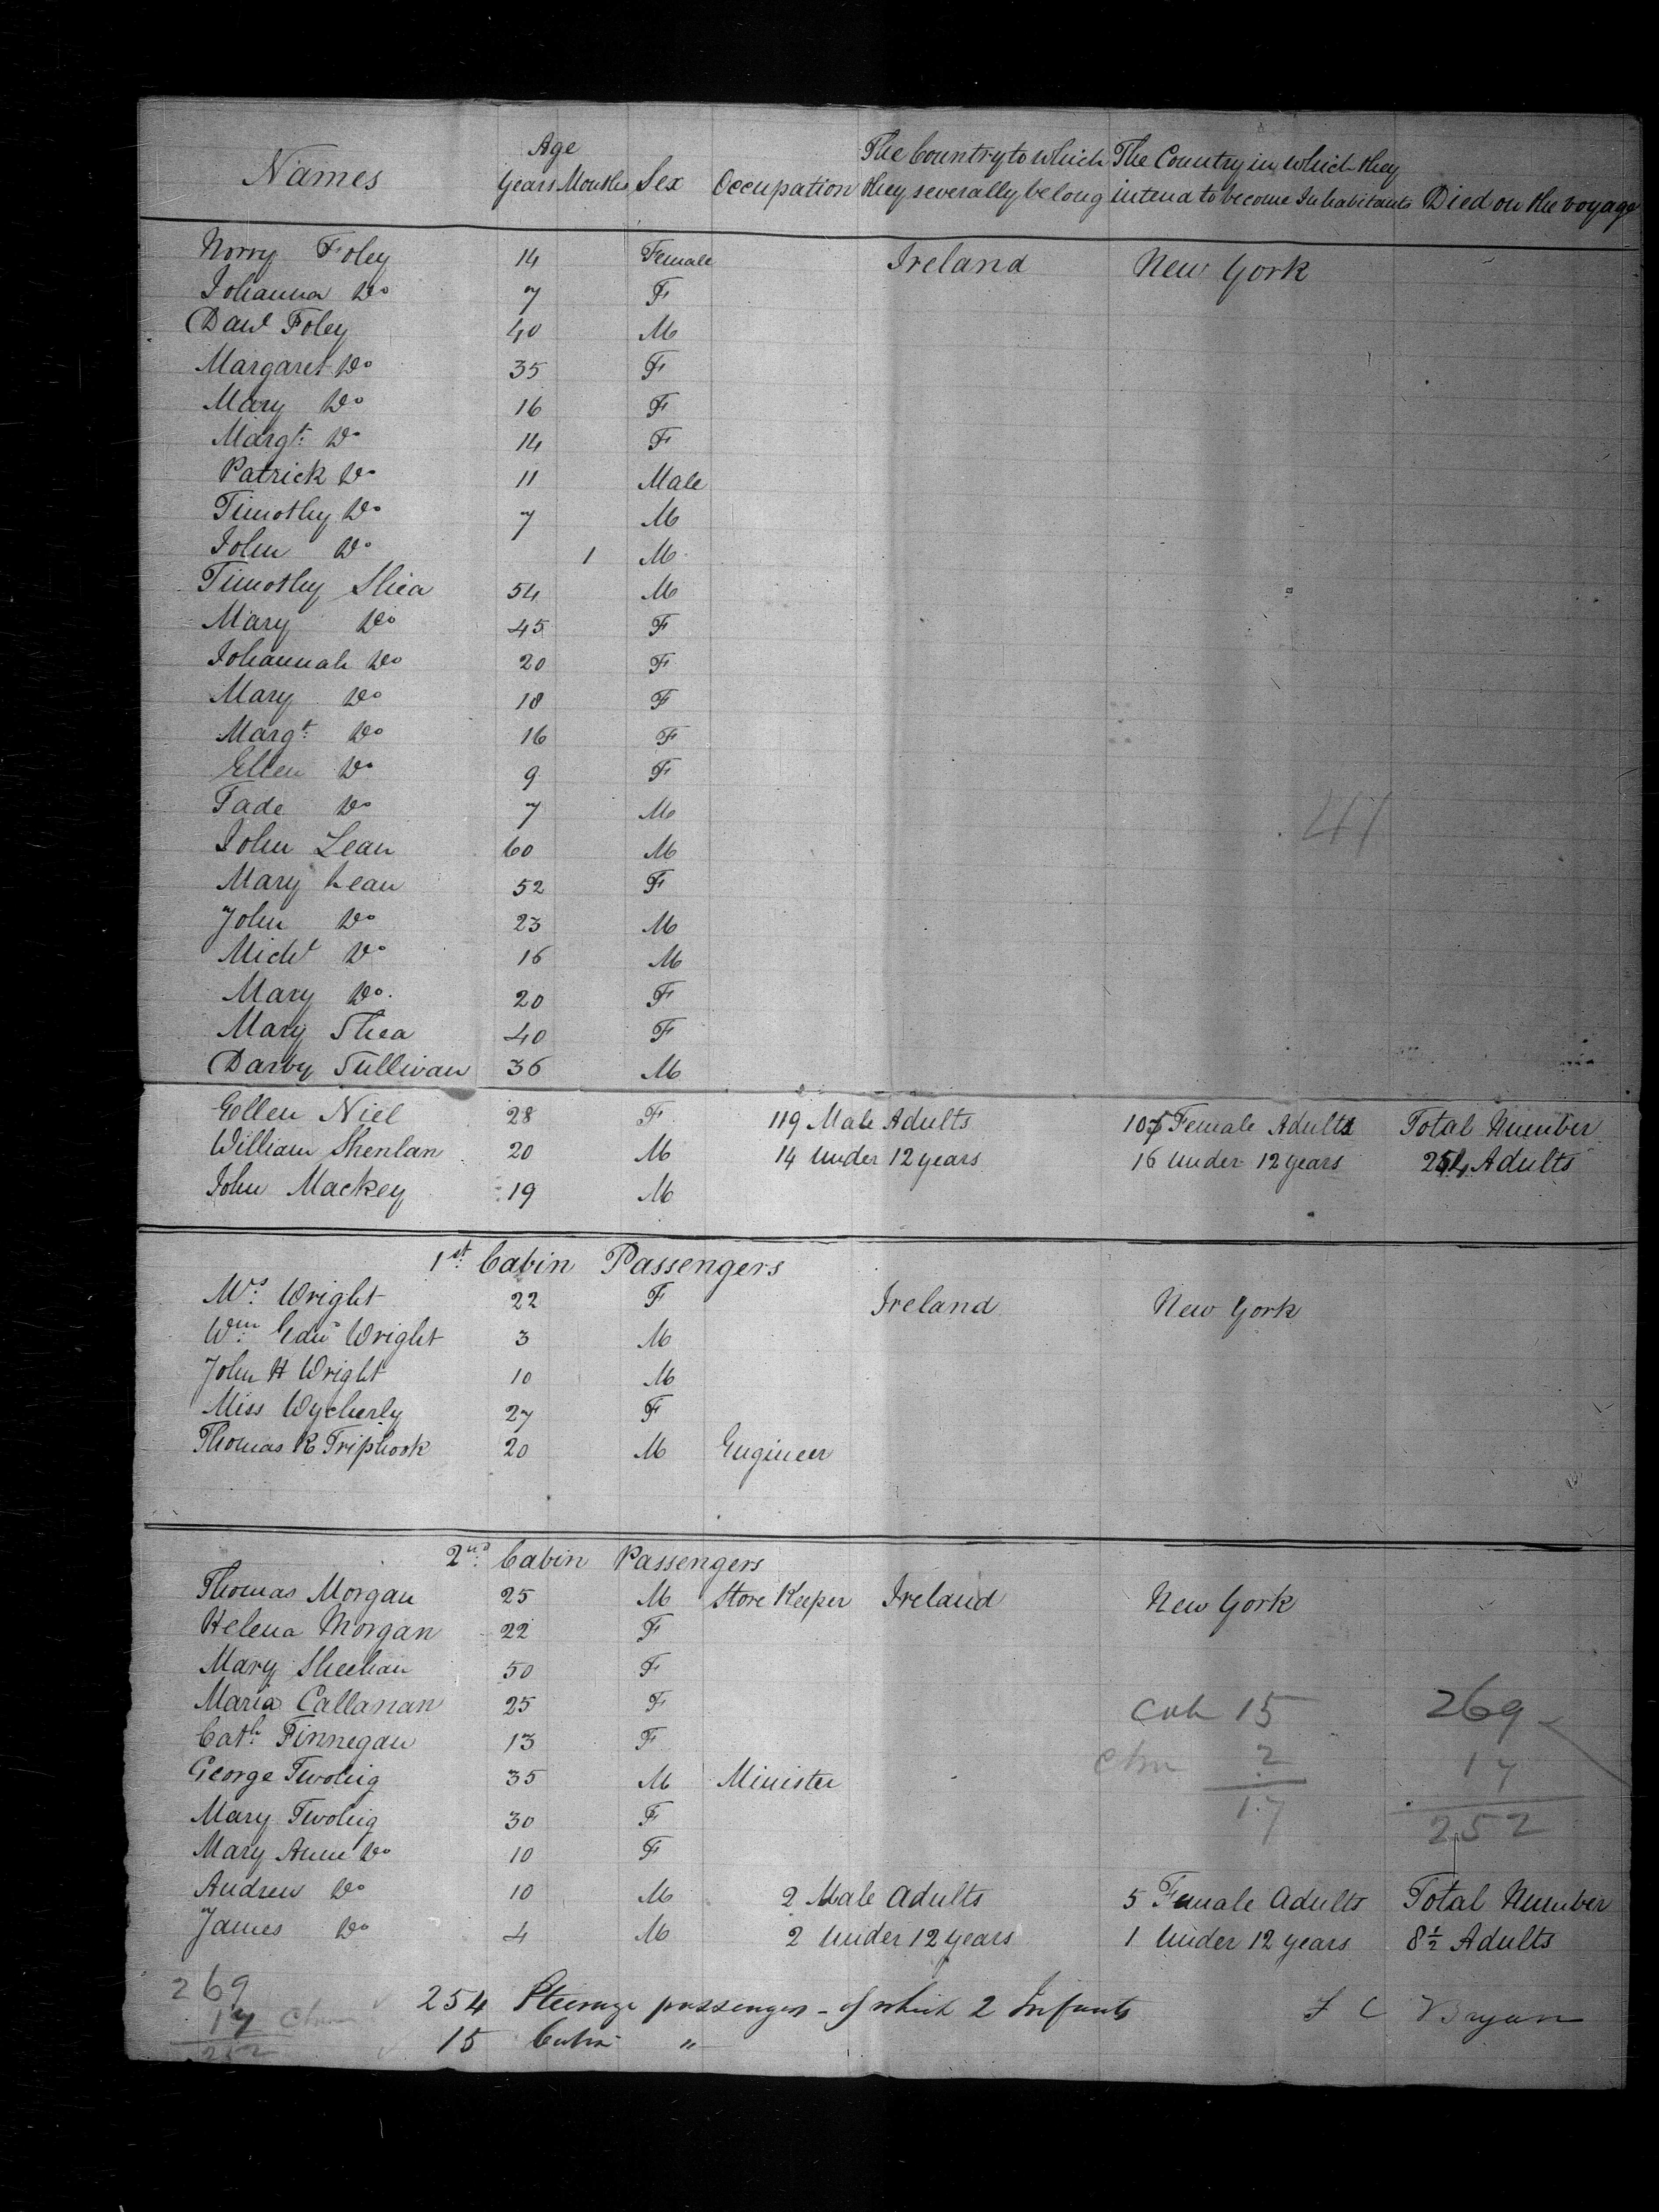 Names Age Years Months Sex Occupation The Country to which they severally belong The Country in which they intend to become Inhabitants Died on the voyage
Norry Foley 14 Female Ireland New York
Johanna Do 7 F
Danl Foley 40 M
Margaret Do 35 F
Mary Do 16 F
Margt. Do 14 F
Patrick Do 11 Male
Timothy Do 7 M
John Do 1 M
Timothy Shea 54 M
Mary Do 45 F
Johannah Do 20 F
Mary Do 18 F
Margt. Do 16 F
Ellen Do 9 F
Tade Do 7 M
41
John Lean 60 M
Mary Lean 52 F
John Do 23 M
Michl Do 16 M
Mary Do. 20 F
Mary Shea 40 F
Darby Sullivan 36 M
Ellen Niel 28 F 119 Male Adults 105 Female Adults Total Number
William Shenlan 20 M 14 Under 12 years 16 Under 12 years 254 Adults
John Mackey 19 M
1st. Cabin Passengers
Mrs. Wright 22 F Ireland New York
Wm. Edwd Wright 3 M
John H Wright 10 M
Miss Wycherly 27 F
Thomas R Triphook 20 M Engineer
2nd. Cabin Passengers
Thomas Morgan 25 M Store Keeper Ireland New York
Helena Morgan 22 F
Mary Sheehan 50 F
Maria Callanan 25 F Cab 15 269
Cath. Finnegan 13 F 2 17
George Twohig 35 M Minister 17 252
Mary Twohig 30 F
Mary Anne Do 10 F
Andrew Do 10 M 2 Male Adults 5 Female Adults Total Number
James Do 4 M 2 Under 12 years 1 Under 12 years 8½ Adults
269
17
252
254 Steerage passengers - of which 2 Infants J C Bryan
15 Cabin "